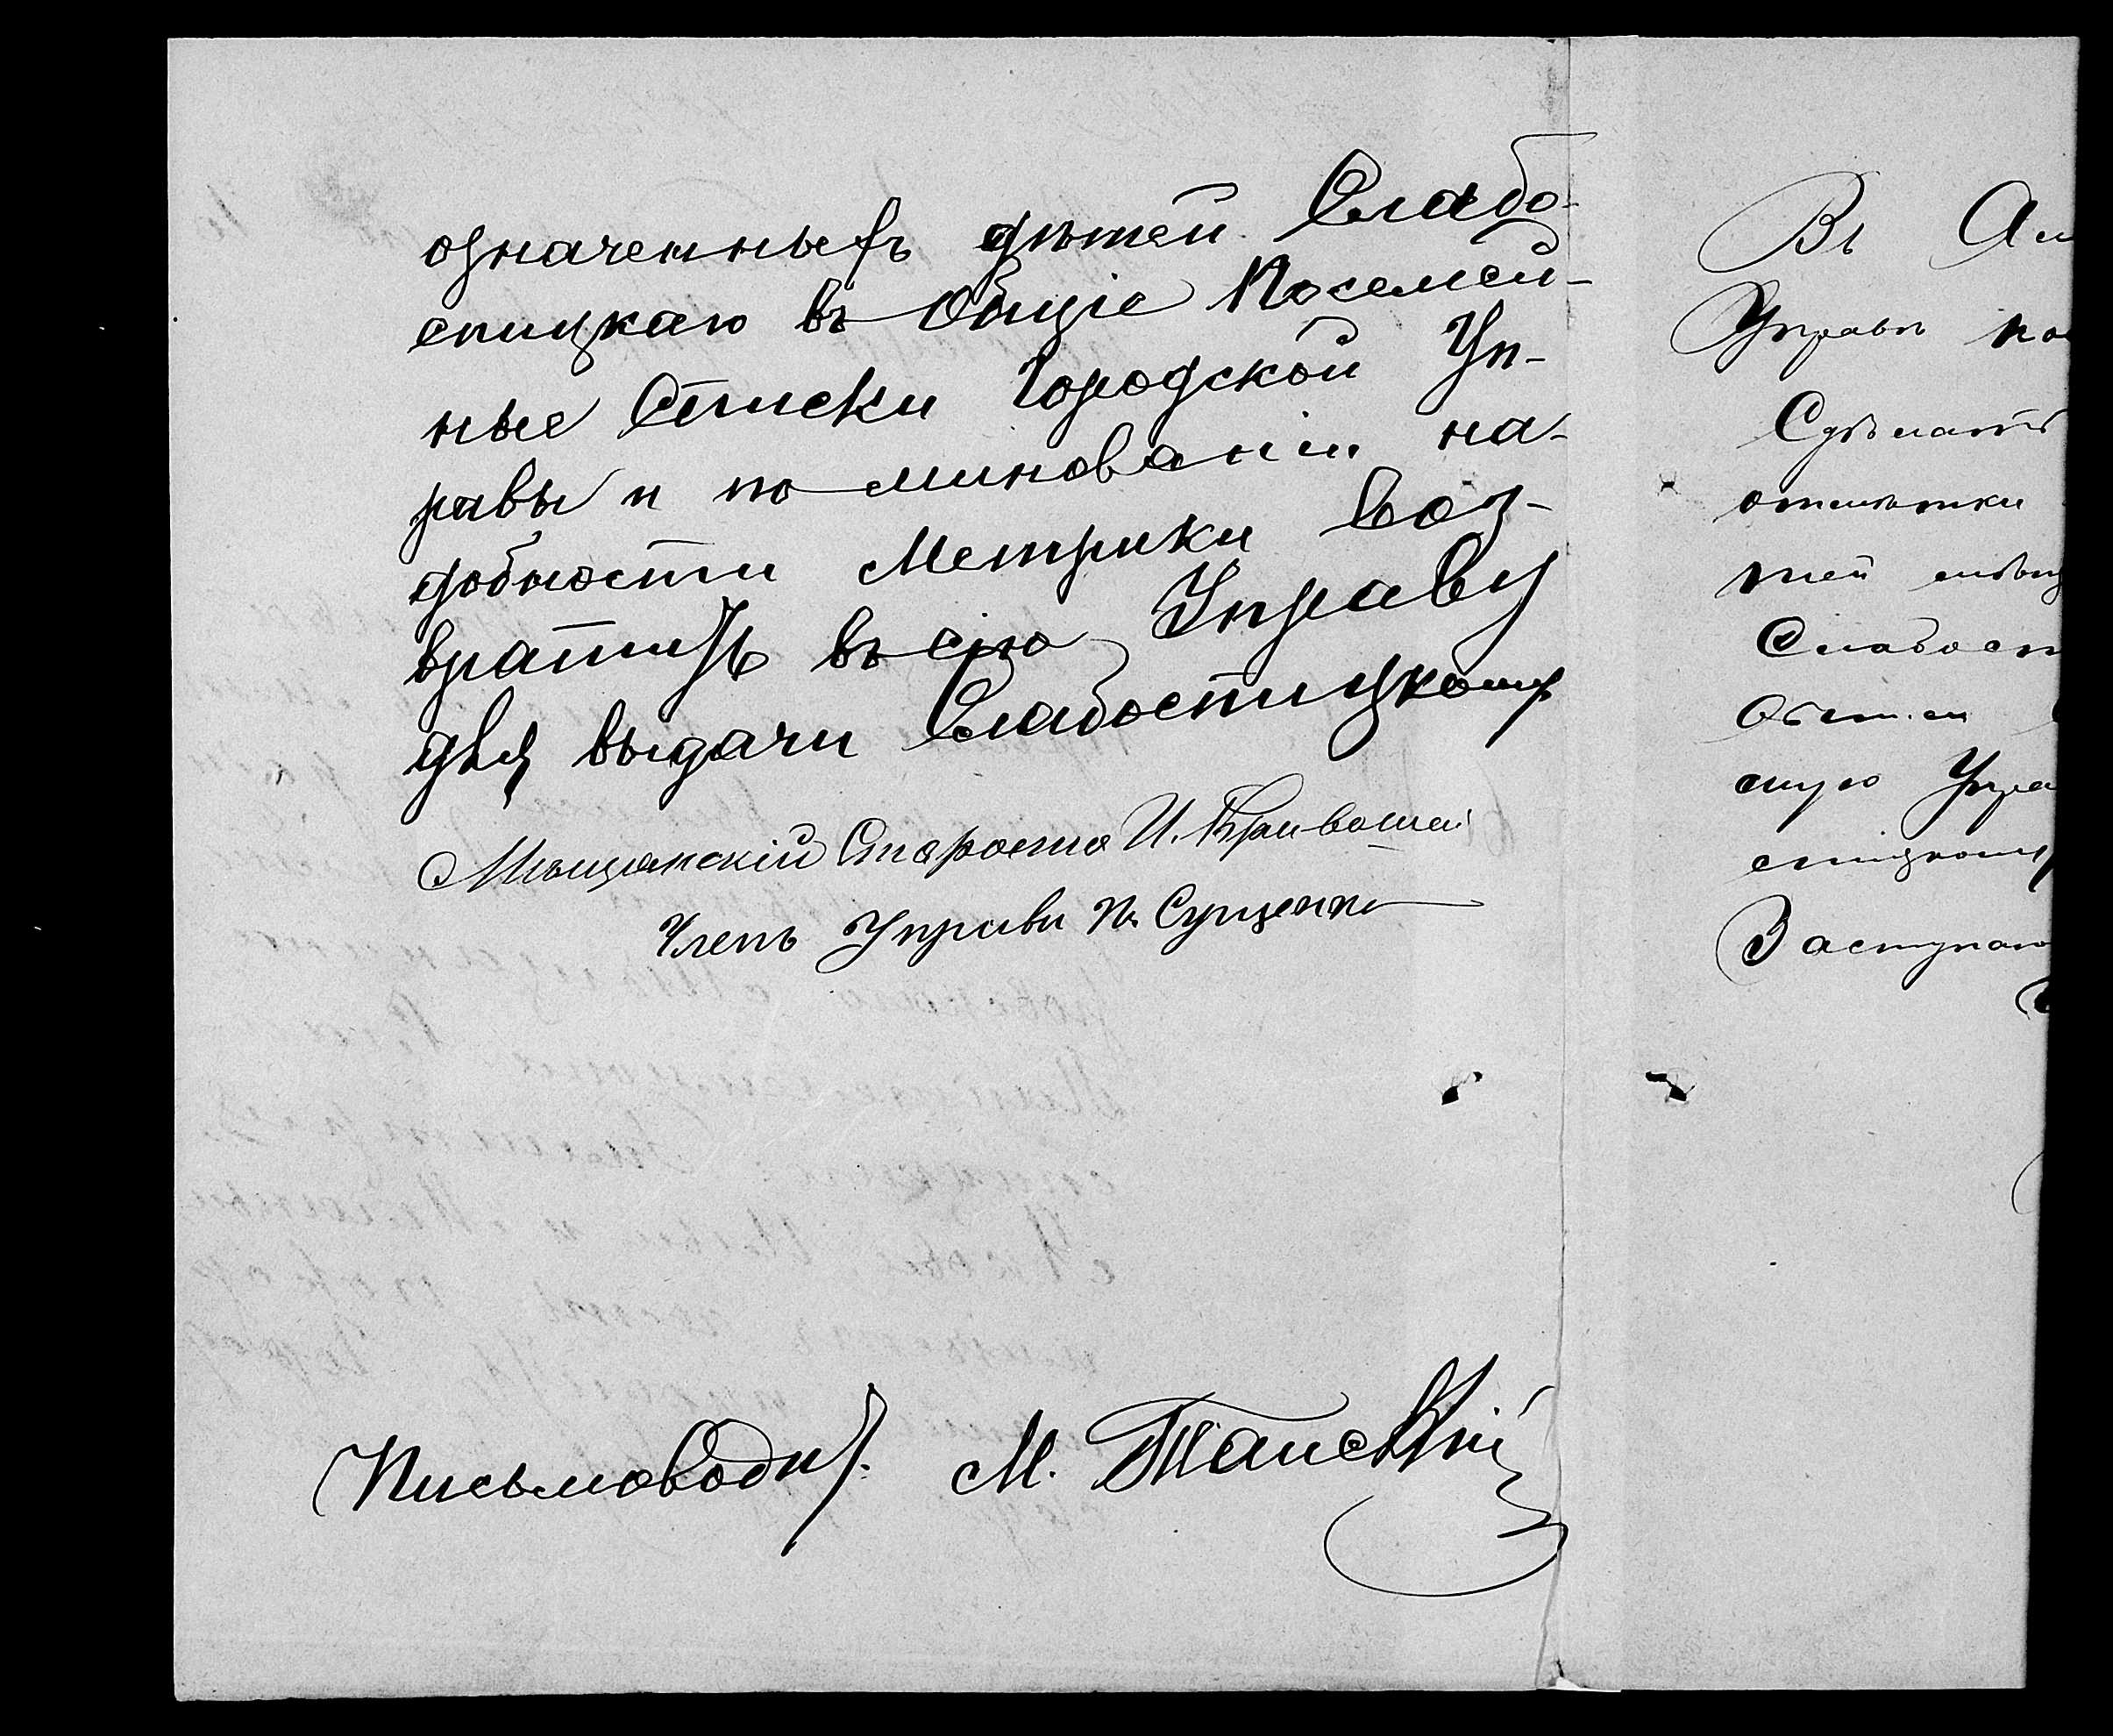 означенныхъ дѣтей Слабо-
стицкаго въ Общіе Посемей-
ные Списки Городской Уп-
равы и по минованіи на-
добности Метрики воз-
вратить въ сію Управу
для выдачи Слабостицкому
Мѣщанскій Староста И. Кривошеи
Членъ Управы П. Сущенко
Письмоводит. М. Танскій
Въ
Управѣ
Сдѣлать
отмѣтки
тей
Слабост
Общ
скую Упра
стицкому
Заступаю